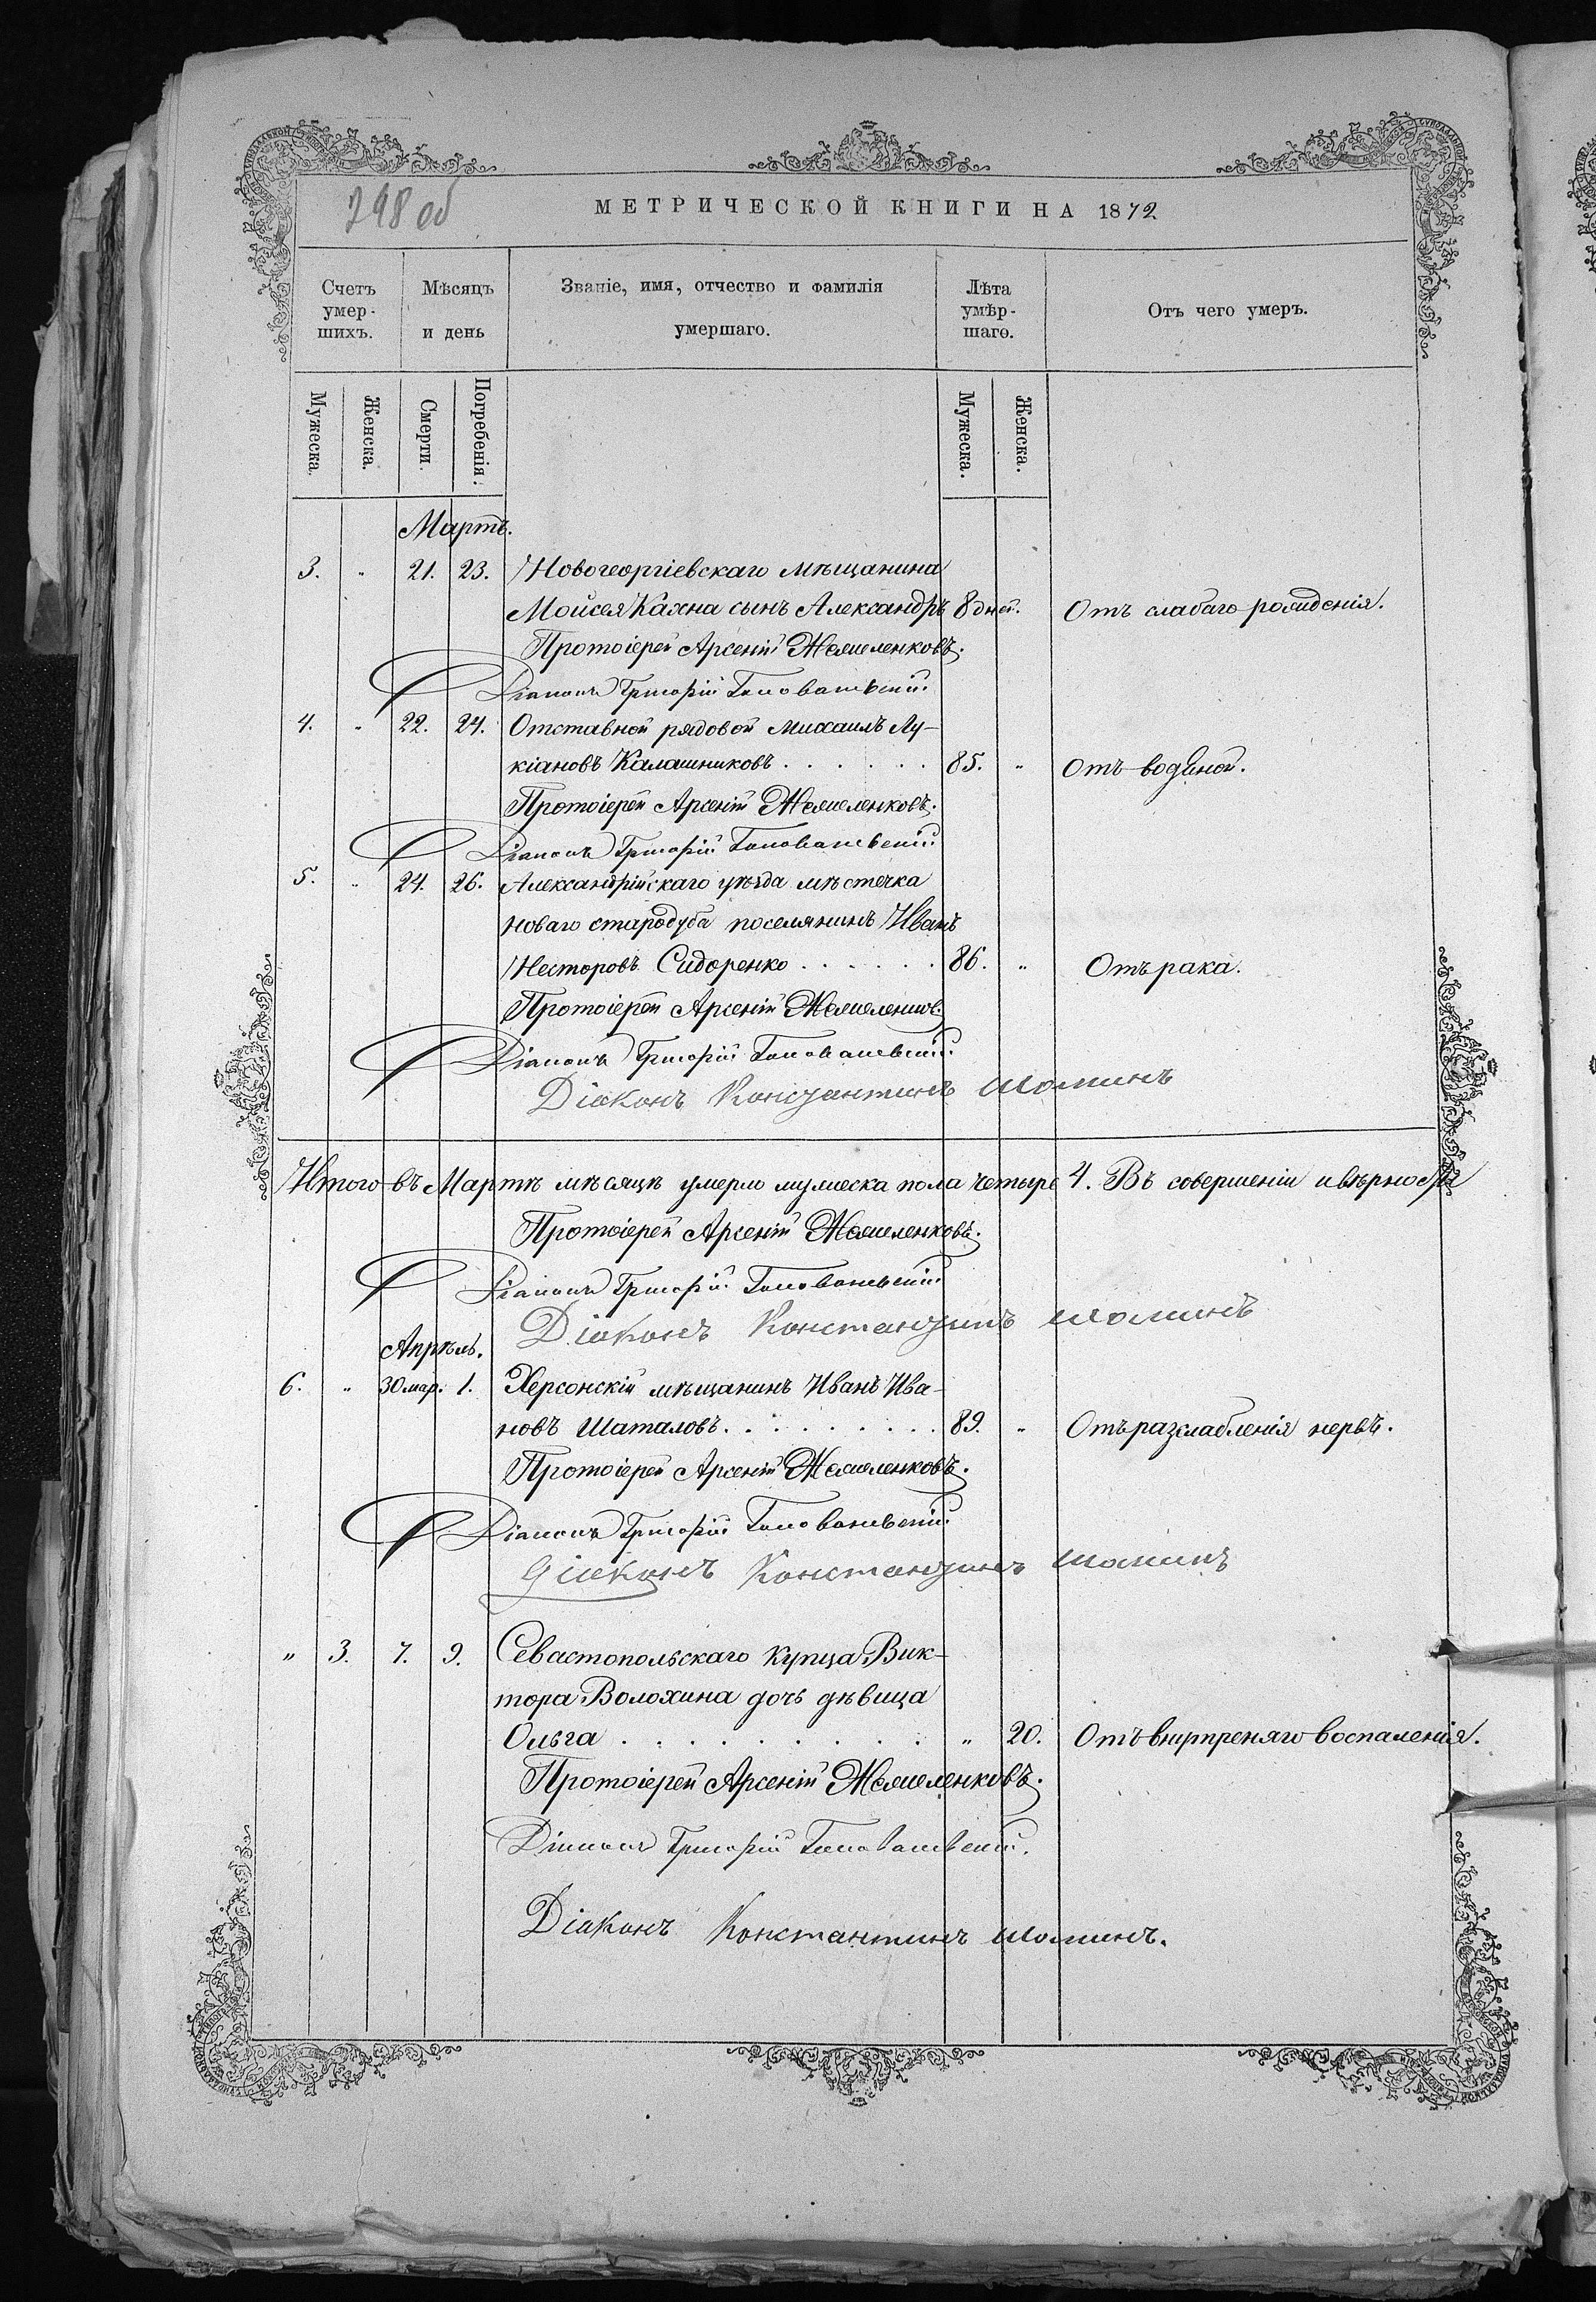 798 об
МЕТРИЧЕСКОЙ КНИГИ НА 1872
Счетъ умер-шихъ.
Мѣсяцъ и день
Званіе, имя, отчество и фамилія умершаго.
Лѣта умѣр-шаго.
Отъ чего умеръ.
Мужеска.
Женска.
Смерти.
Погребенія.
Мужеска.
Женска.
Мартъ.
3. " 21. 23. Новогеоргіевскаго мѣщанина
Мойсея Кахна сынъ Александръ 8 дней. Отъ слабаго рожденія.
Протоіерей Арсеній
Діаконъ Григорій
4. " 22. 24. Отставной рядовой Михаилъ Лу-
кіановъ Калашниковъ . . . . . . 85. " Отъ водяной.
Протоіерей Арсеній
Діаконъ Григорій
5. " 24. 26. Александрійскаго уѣзда мѣстечка
новаго стародуба поселянинъ Иванъ
Несторовъ Сидоренко . . . . . . 86. " Отъ рака.
Протоіерей Арсеній
Діаконъ Григорій
Діаконъ Константинъ
Итого въ Мартѣ мѣсяцѣ умерло мужеска пола четыре 4. Въ совершеніи и вѣрности
Протоіерей Арсеній
Діаконъ Григорій
Діаконъ Константинъ
Апрѣль.
6. " 30 мар. 1. Херсонскій мѣщанинъ Иванъ Ива-
новъ Шаталовъ . . . . . . . . 89. " Отъ разслабленія нервъ.
Протоіерей Арсеній
Діаконъ Григорій
Діаконъ Константинъ
" 3. 7. 9. Севастопольскаго купца Вик-
тора Волохина дочь дѣвица
Ольга . . . . . . . . . . " 20. Отъ внутреняго воспаленія.
Протоіерей Арсеній
Діаконъ Григорій
Діаконъ Константинъ